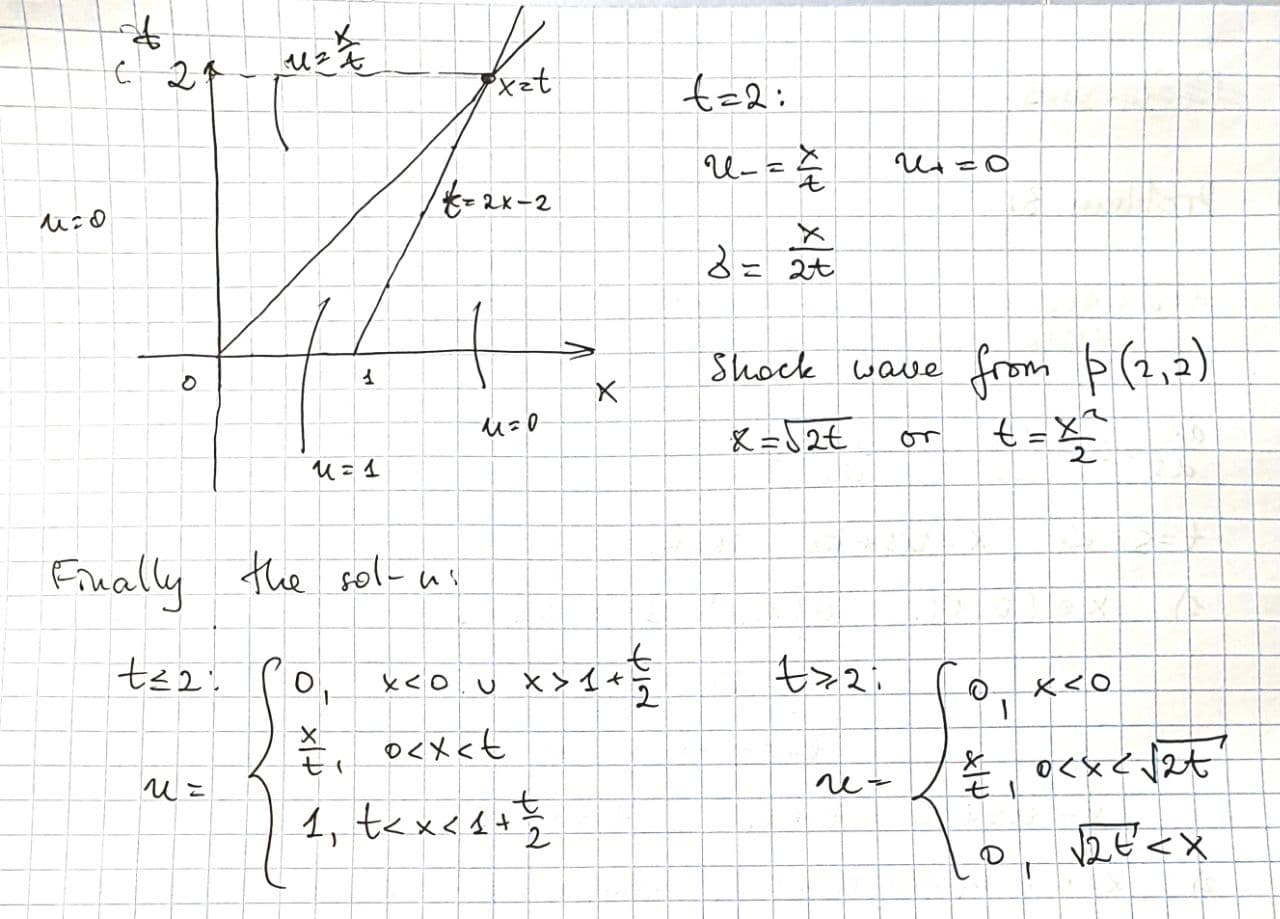 t
2
u=x/t
x=t
t=2x-2
u=0
0
1
x
u=0
u=1
t=2:
u₋=x/t u₊=0
s=x/2t
Shock wave from p(2,2)
x=√2t or t=x²/2
Finally the sol-n:
t≤2:
u=
0, x<0 ∪ x>1+t/2
x/t, 0<x<t
1, t<x<1+t/2
t≥2:
u=
0, x<0
x/t, 0<x<√2t
0, √2t<x